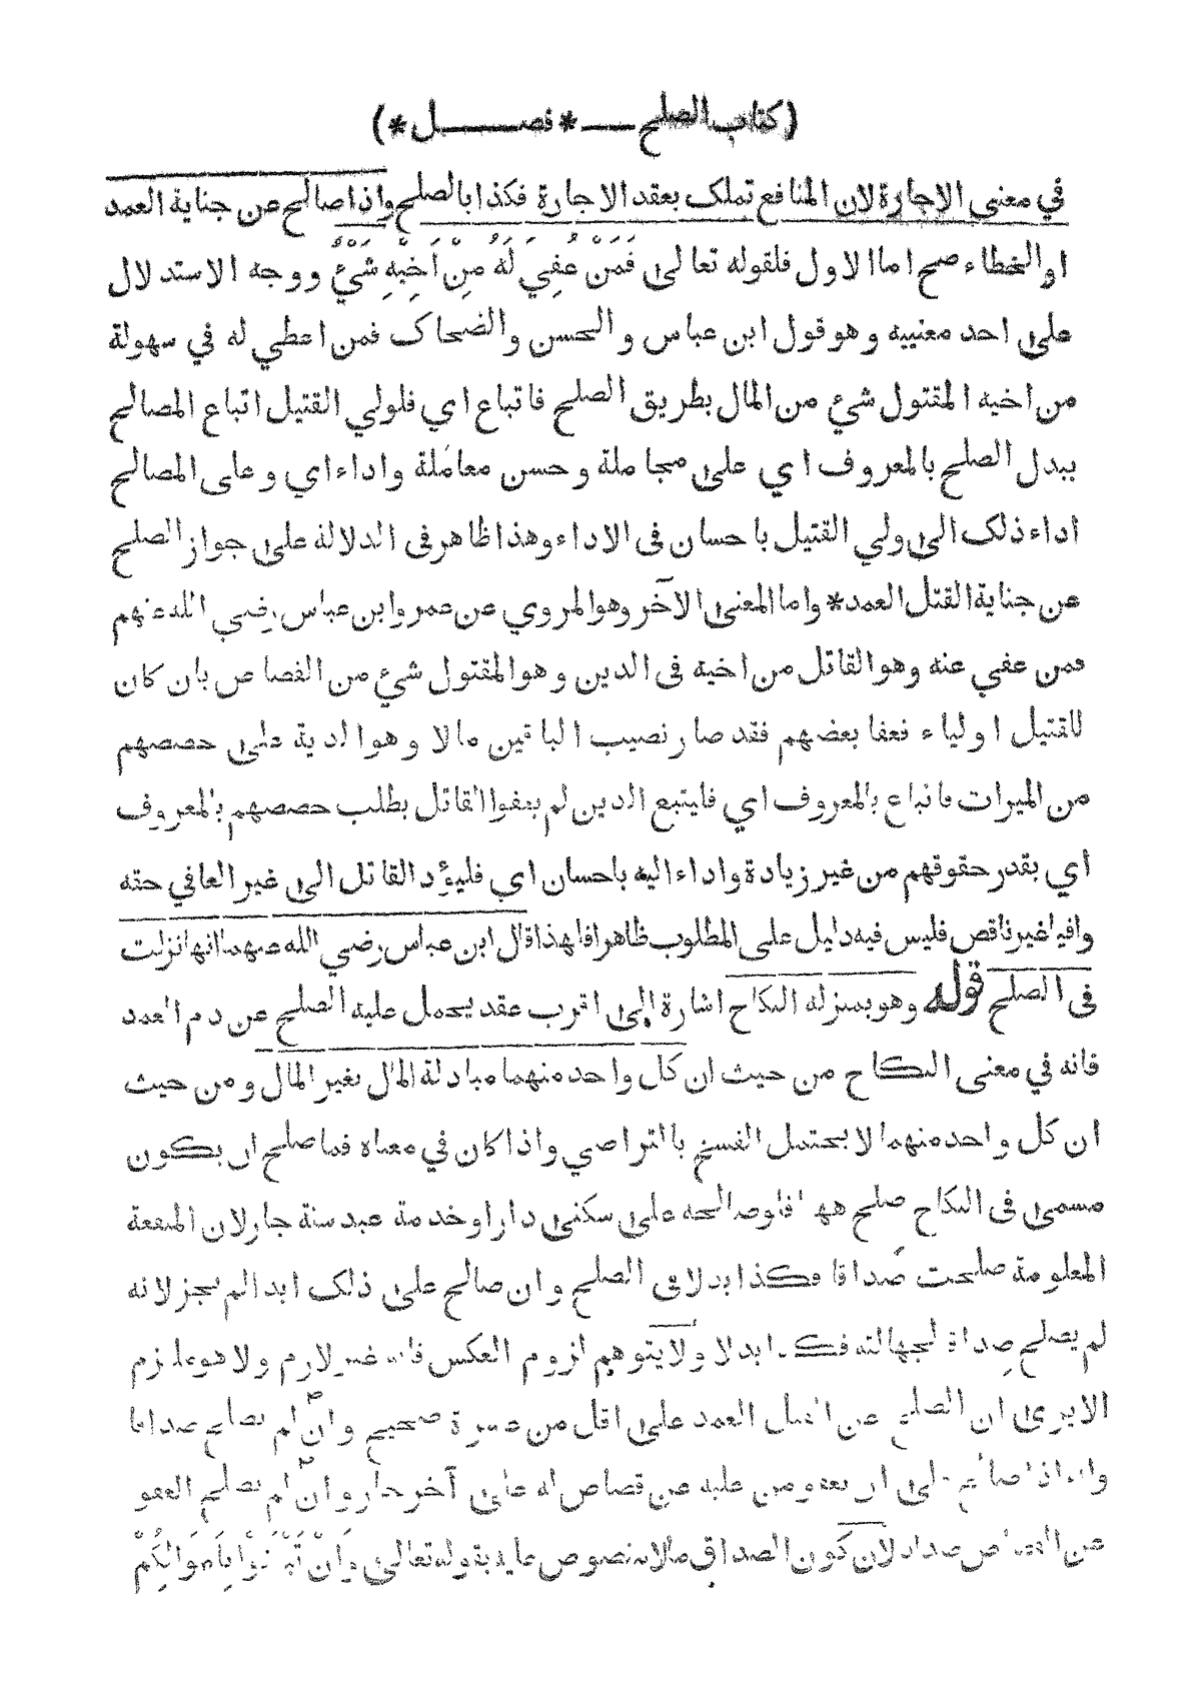 (كتاب الصلح — * فصـــــل *)
في معنى الاجارة لان المنافع تملك بعقد الاجارة فكذا بالصلح واذا صالح عن جناية العمد
او الخطاء صح اما الاول فلقوله تعالى فَمَنْ عُفِيَ لَهُ مِنْ اَخِيْهِ شَيْءٌ ووجه الاستدلال
على احد معنييه وهو قول ابن عباس والحسن والضحاك فمن اعطي له في سهولة
من اخيه المقتول شئ من المال بطريق الصلح فاتباع اي فلولي القتيل اتباع المصالح
ببدل الصلح بالمعروف اي على مجاملة وحسن معاملة واداء اي وعلى المصالح
اداء ذلك الى ولي القتيل باحسان فى الاداء وهذا ظاهر فى الدلالة على جواز الصلح
عن جناية القتل العمد * واما المعنى الآخر وهو المروي عن عمر وابن عباس رضي الله عنهم
فمن عفي عنه وهو القاتل من اخيه فى الدين وهو المقتول شئ من القصاص بان كان
للقتيل اولياء فعفا بعضهم فقد صار نصيب الباقين مالا وهو الدية على حصصهم
من الميراث فاتباع بالمعروف اي فليتبع الذين لم يعفوا القاتل بطلب حصصهم بالمعروف
اي بقدر حقوقهم من غير زيادة واداء اليه باحسان اي فليؤد القاتل الى غير العافي حقه
وافيا غير ناقص فليس فيه دليل على المطلوب ظاهرا فلهذا قال ابن عباس رضي الله عنهما انها نزلت
فى الصلح قوله وهو بمنزلة النكاح اشارة الى اقرب عقد يحمل عليه الصلح عن دم العمد
فانه في معنى النكاح من حيث ان كل واحد منهما مبادلة المال بغير المال ومن حيث
ان كل واحد منهما لا يحتمل الفسخ بالتراضي واذا كان في معناه فما صلح ان يكون
مسمى فى النكاح صلح ههنا فلو صالحه على سكنى دار او خدمة عبد سنة جاز لان المنفعة
المعلومة صلحت صداقا فكذا بدلا فى الصلح وان صالح على ذلك ابدا لم يجز لانه
لم يصلح صداقا لجهالته فكذا بدلا ولا يتوهم لزوم العكس فانه غير لازم ولا هو ملتزم
الا يرى ان الصلح عن القتل العمد على اقل من عشرة صحيح وان لم يصلح صداقا
وانه اذا صالح على ان يعفو من عليه عن قصاص له على آخر جاز وان لم يصلح العفو
عن القصاص صداقا لان كون الصداق مالا منصوص عليه بقوله تعالى وَاَنْ تَبْتَغُوْا بِاَمْوَالِكُمْ